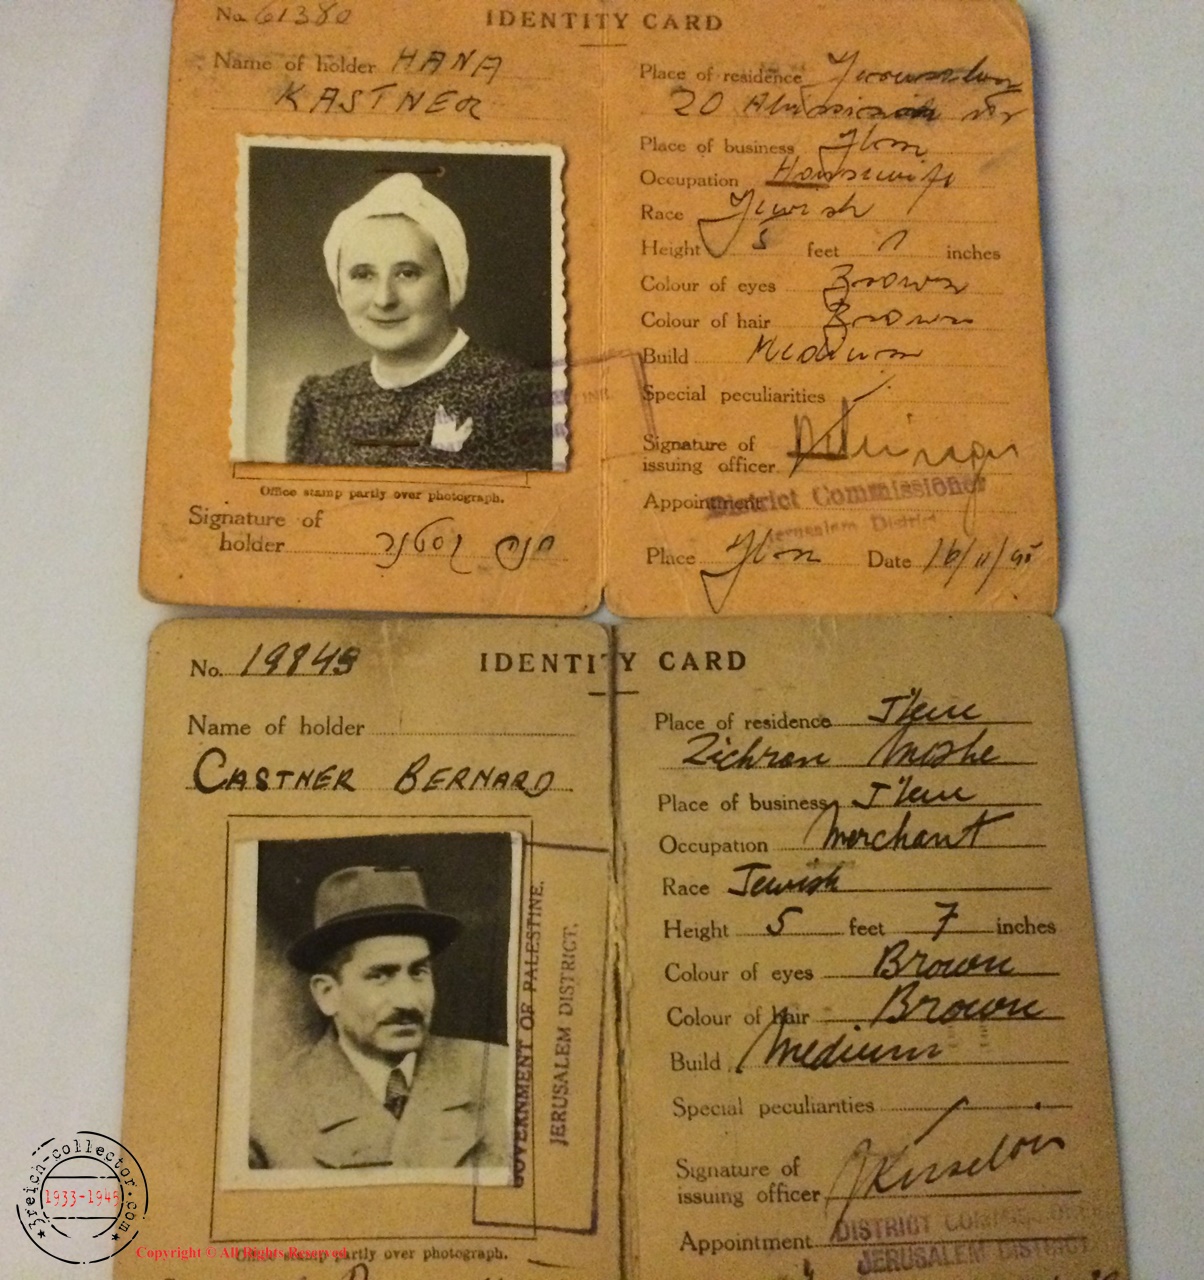 No. 61380
IDENTITY CARD
Name of holder HANA
KASTNER
Office stamp partly over photograph.
Signature of
holder חנה קסטנר
Place of residence
20
Place of business Jlem
Occupation Housewife
Race Jewish
Height 5 feet inches
Colour of eyes Brown
Colour of hair Brown
Build Medium
Special peculiarities
Signature of
issuing officer
Appointment District Commissioner
Jerusalem District
Place Jlem Date 16/11/45
No. 19843
IDENTITY CARD
Name of holder
CASTNER BERNARD
GOVERNMENT OF PALESTINE.
JERUSALEM DISTRICT.
Office stamp partly over photograph.
Place of residence J'lem
Zichron Moshe
Place of business J'lem
Occupation Merchant
Race Jewish
Height 5 feet 7 inches
Colour of eyes Brown
Colour of hair Brown
Build Medium
Special peculiarities
Signature of
issuing officer
Appointment DISTRICT COMMISSIONER
JERUSALEM DISTRICT
3reich-collector.com
1933-1945
Copyright © All Rights Reserved